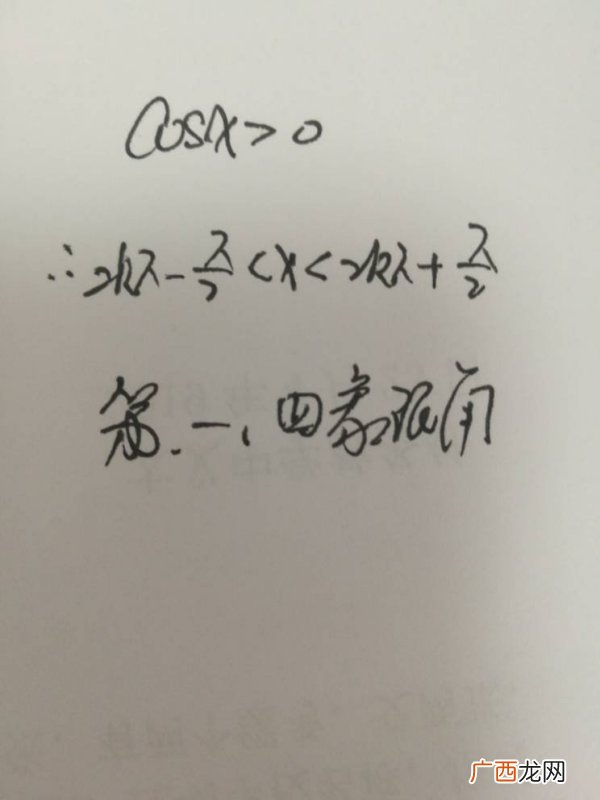 cosx>0
∴2kπ-π/2<x<2kπ+π/2
第一、四象限角
广西龙网